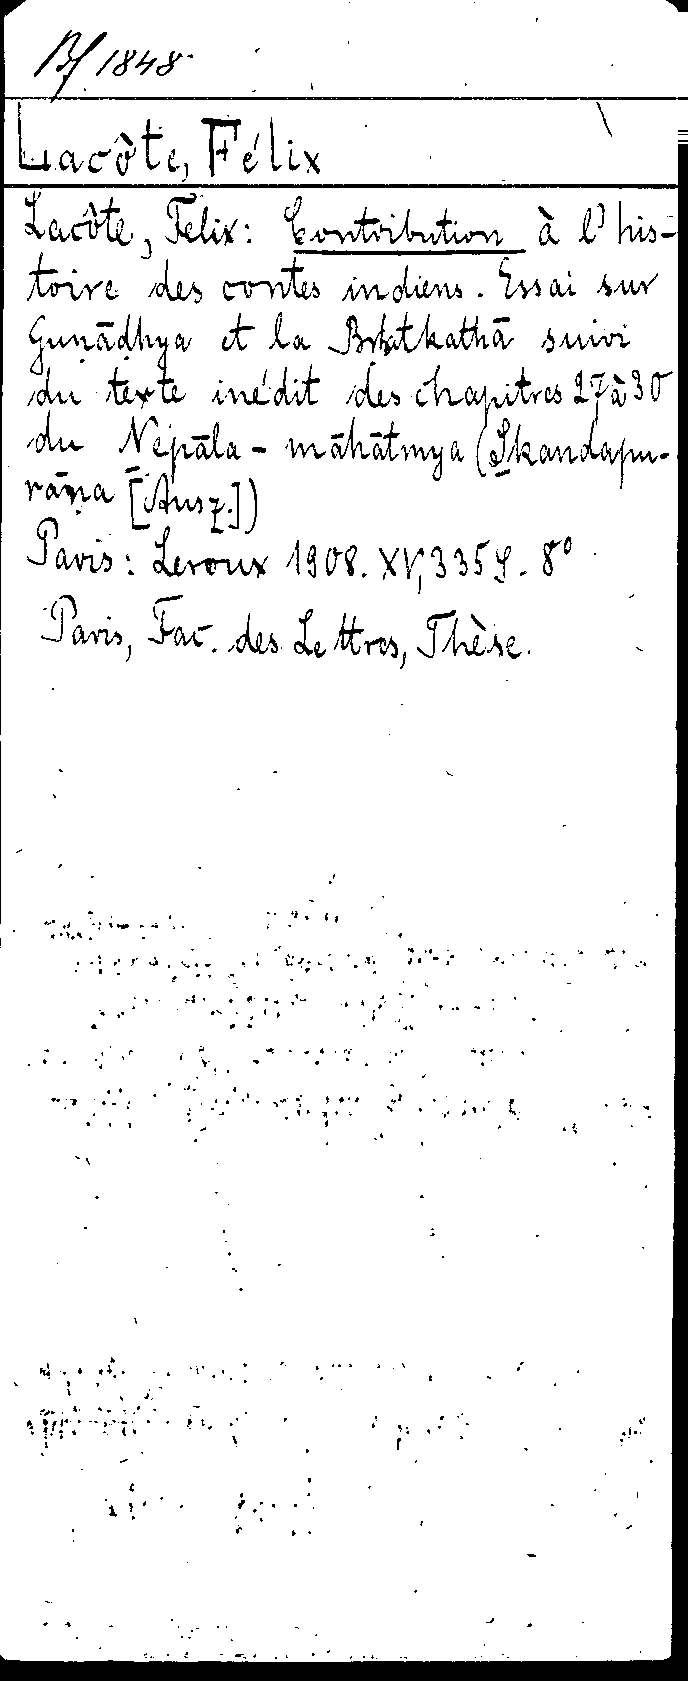 Bf 1848
Lacôte, Félix
Lacôte, Felix: Contribution à l'his-
toire des contes indiens. Essai sur
Guṇāḍhya et la Bṛhatkathā suivi
du texte inédit des chapitres 27 à 30
du Nepāla-māhātmya (Skandapu-
rāṇa [Ausz.])
Paris: Leroux 1908. XV, 335 S. 8°
Paris, Fac. des Lettres, Thèse.